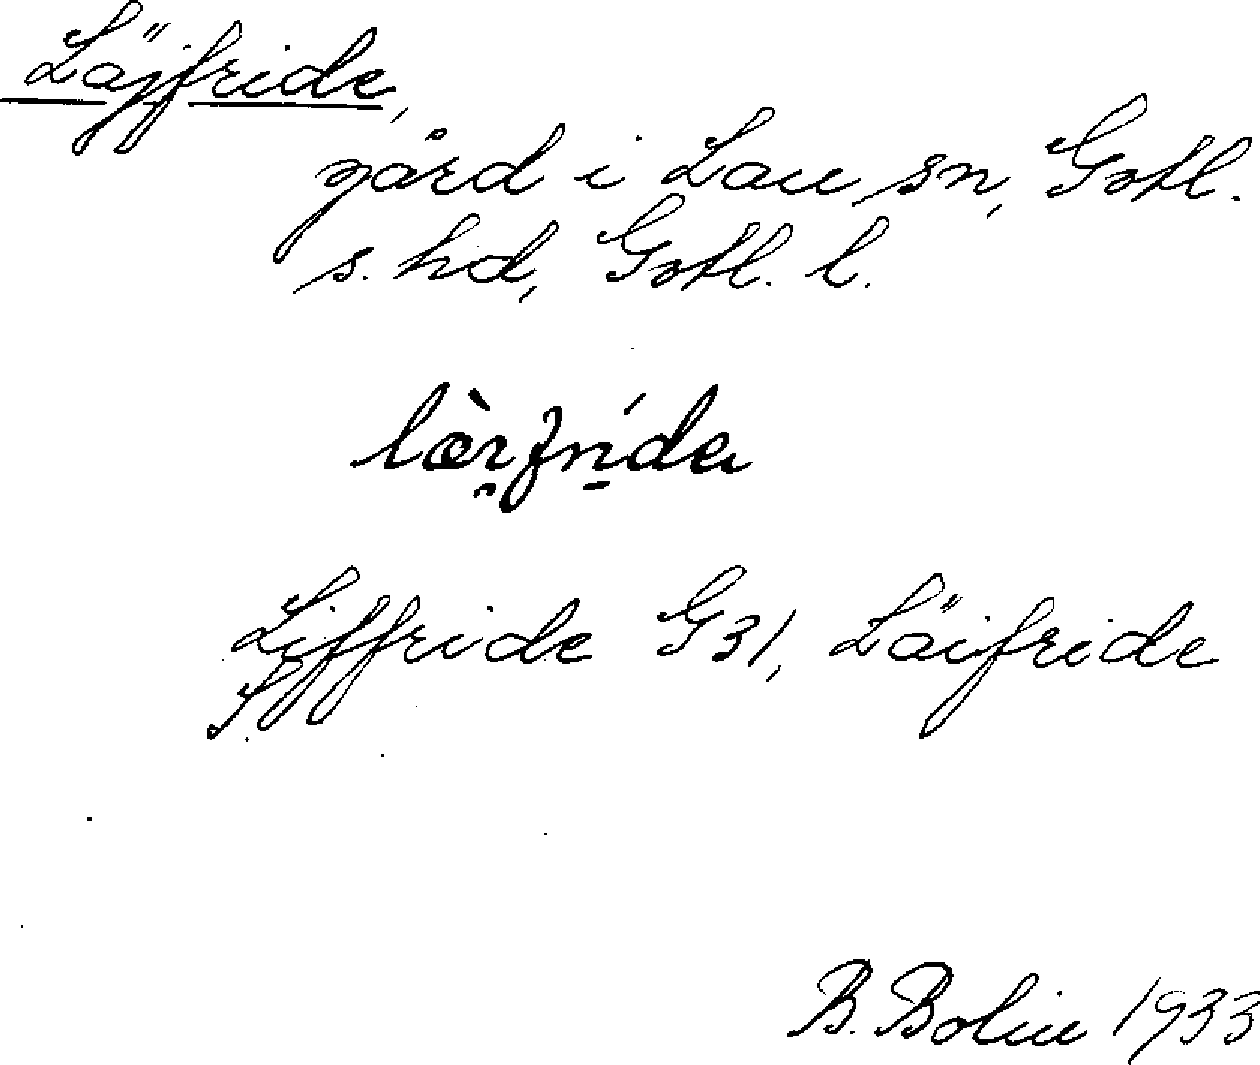 Läjfride,
gård i Lau sn, Gotl.
s. hd, Gotl. l.
Liffride G31, Läifride
J.
B. Bolin 1933